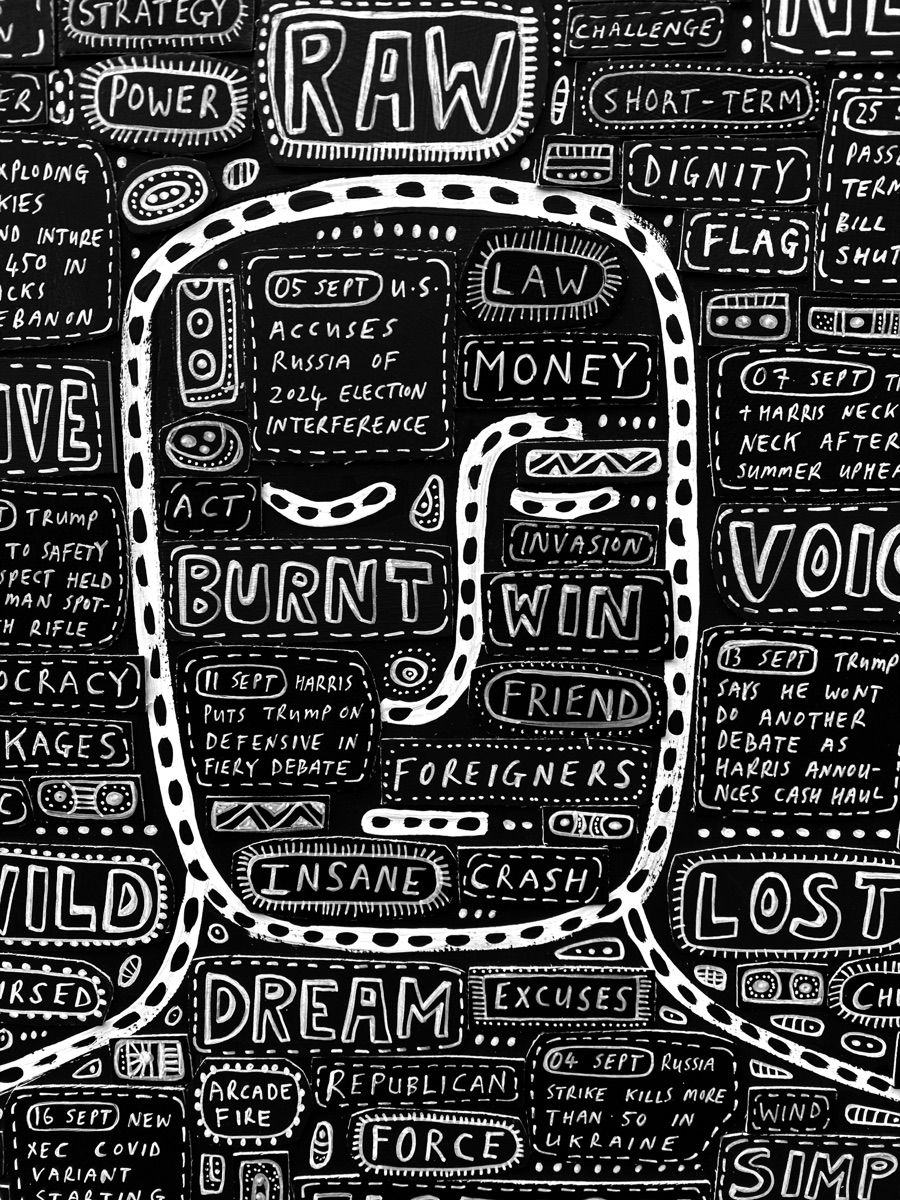 STRATEGY
RAW
CHALLENGE
POWER
SHORT-TERM
25
DIGNITY
FLAG
PASS
TERM
BILL
SHUT
XPLODING
KIES
ND INTURE
450 IN
ACKS
EBANON
05 SEPT U.S.
ACCUSES
RUSSIA OF
2024 ELECTION
INTERFERENCE
LAW
MONEY
07 SEPT T
+ HARRIS NECK
NECK AFTER
SUMMER UPHEA
IVE
ACT
TRUMP
TO SAFETY
SPECT HELD
MAN SPOT-
TH RIFLE
INVASION
BURNT
WIN
VOIC
11 SEPT HARRIS
PUTS TRUMP ON
DEFENSIVE IN
FIERY DEBATE
FRIEND
FOREIGNERS
13 SEPT TRUMP
SAYS HE WONT
DO ANOTHER
DEBATE AS
HARRIS ANNOU-
NCES CASH HAUL
OCRACY
KAGES
C
WILD
INSANE
CRASH
LOST
URSED
DREAM
EXCUSES
CH
ARCADE
FIRE
REPUBLICAN
FORCE
04 SEPT RUSSIA
STRIKE KILLS MORE
THAN 50 IN
UKRAINE
WIND
SIMP
16 SEPT NEW
XEC COVID
VARIANT
STARTING